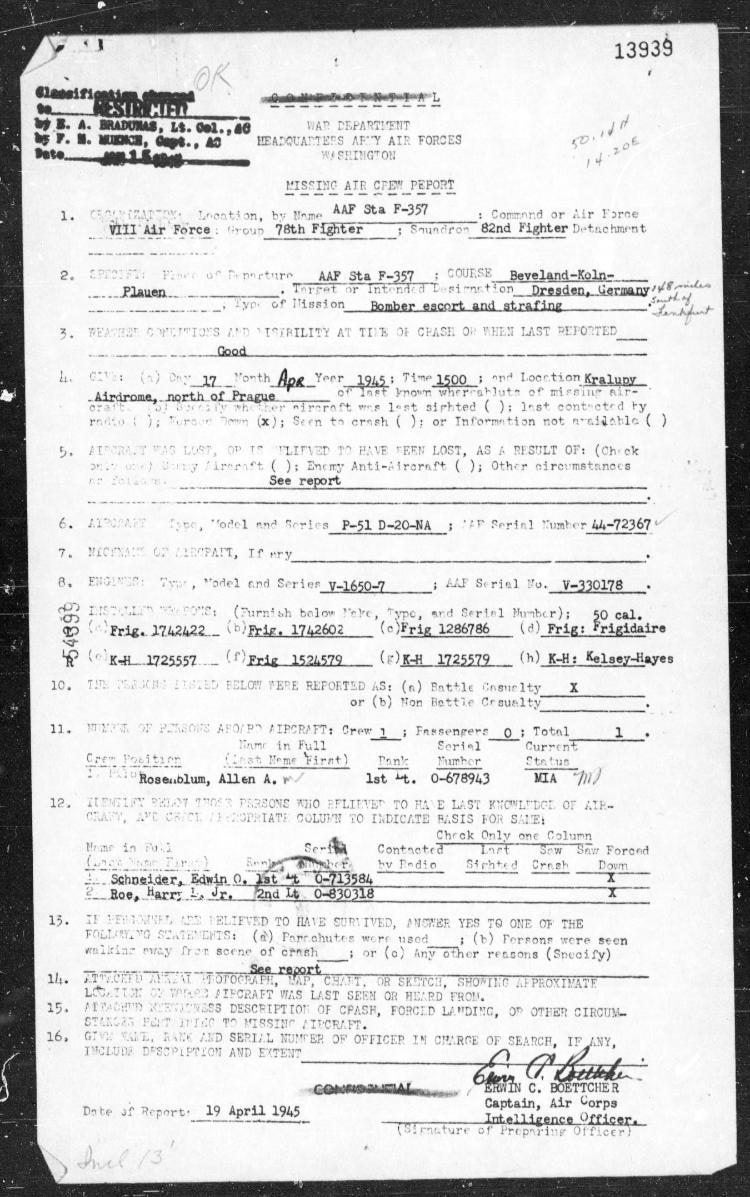 13939
OK
Classification changed
to RESTRICTED
by E. A. BRADUNAS, Lt. Col., AC
by F. M. MUENCH, Capt., AC
Date
CONFIDENTIAL
WAR DEPARTMENT
HEADQUARTERS ARMY AIR FORCES
WASHINGTON
50.14N
14.20E
MISSING AIR CREW REPORT
1. ORGANIZATION: Location, by Name AAF Sta F-357 ; Command or Air Force
VIII Air Force; Group 78th Fighter ; Squadron 82nd Fighter Detachment
2. SPECIFY: Place of Departure AAF Sta F-357 ; COURSE Beveland-Koln-
Plauen . Target or Intended Designation Dresden, Germany
148 miles
South of
Frankfurt
; Type of Mission Bomber escort and strafing
3. WEATHER CONDITIONS AND VISIBILITY AT TIME OF CRASH OR WHEN LAST REPORTED
Good
4. GIVE: (a) Day 17 Month Apr Year 1945; Time 1500 ; and Location Kralupy
Airdrome, north of Prague of last known whereabluts of missing air-
craft. (b) Specify whether aircraft was last sighted ( ); last contacted by
radio ( ); Forced Down (x); Seen to crash ( ); or Information not available ( )
5. AIRCRAFT WAS LOST, OR IS BELIEVED TO HAVE BEEN LOST, AS A RESULT OF: (Check
only one) Enemy Aircraft ( ); Enemy Anti-Aircraft ( ); Other circumstances
as follows. See report
6. AIRCRAFT Type, Model and Series P-51 D-20-NA ; AAF Serial Number 44-72367
7. NICKNAME OF AIRCRAFT, If any .
8. ENGINES: Type, Model and Series V-1650-7 ; AAF Serial No. V-330178 .
R 54899
INSTALLED WEAPONS: (Furnish below Make, Type, and Serial Number); 50 cal.
(a) Frig. 1742422 (b) Frig. 1742602 (c) Frig 1286786 (d) Frig: Frigidaire
(e) K-H 1725557 (f) Frig 1524579 (g) K-H 1725579 (h) K-H: Kelsey-Hayes
10. THE PERSONS LISTED BELOW WERE REPORTED AS: (a) Battle Casualty X
or (b) Non Battle Casualty .
11. NUMBER OF PERSONS ABOARD AIRCRAFT: Crew 1 ; Passengers 0 ; Total 1 .
Name in Full Serial Current
Crew Position (Last Name First) Rank Number Status
1. Pilot Rosenblum, Allen A. 1st Lt. 0-678943 MIA
12. IDENTIFY BELOW THOSE PERSONS WHO BELIEVED TO HAVE LAST KNOWLEDGE OF AIR-
CRAFT, AND CHECK APPROPRIATE COLUMN TO INDICATE BASIS FOR SAME:
Check Only one Column
Name in Full Serial Contacted Last Saw Saw Forced
(Last Name First) Rank Number by Radio Sighted Crash Down
1. Schneider, Edwin O. 1st Lt 0-713584 X
2. Roe, Harry L. Jr. 2nd Lt 0-830318 X
13. IF PERSONNEL ARE BELIEVED TO HAVE SURVIVED, ANSWER YES TO ONE OF THE
FOLLOWING STATEMENTS: (a) Parachutes were used ; (b) Persons were seen
walking away from scene of crash ; or (c) Any other reasons (Specify)
See report
14. ATTACHED AERIAL PHOTOGRAPH, MAP, CHART, OR SKETCH, SHOWING APPROXIMATE
LOCATION OF WHERE AIRCRAFT WAS LAST SEEN OR HEARD FROM.
15. ATTACHED EYEWITNESS DESCRIPTION OF CRASH, FORCED LANDING, OR OTHER CIRCUM-
STANCES PERTAINING TO MISSING AIRCRAFT.
16. GIVE NAME, RANK AND SERIAL NUMBER OF OFFICER IN CHARGE OF SEARCH, IF ANY,
INCLUDE DESCRIPTION AND EXTENT
Erwin C. Boettcher
CONFIDENTIAL
ERWIN C. BOETTCHER
Captain, Air Corps
Date of Report: 19 April 1945
Intelligence Officer.
(Signature of Preparing Officer)
Incl 13